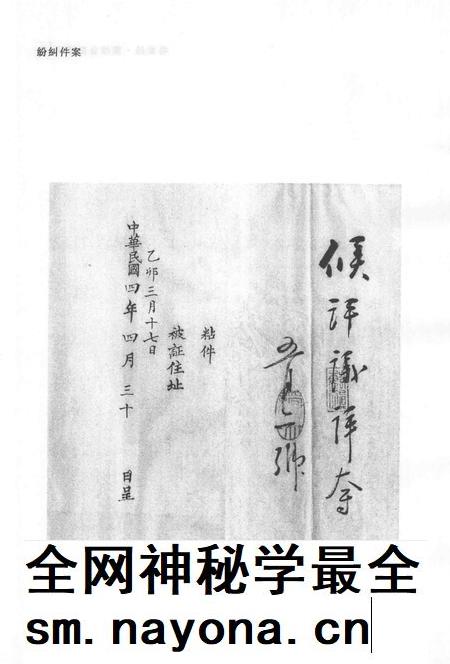 紛糾件案
候評議詳奪
五月二號
粘件
被証住址
乙卯三月十七日
中華民國四年四月三十 日呈
全网神秘学最全
sm.nayona.cn